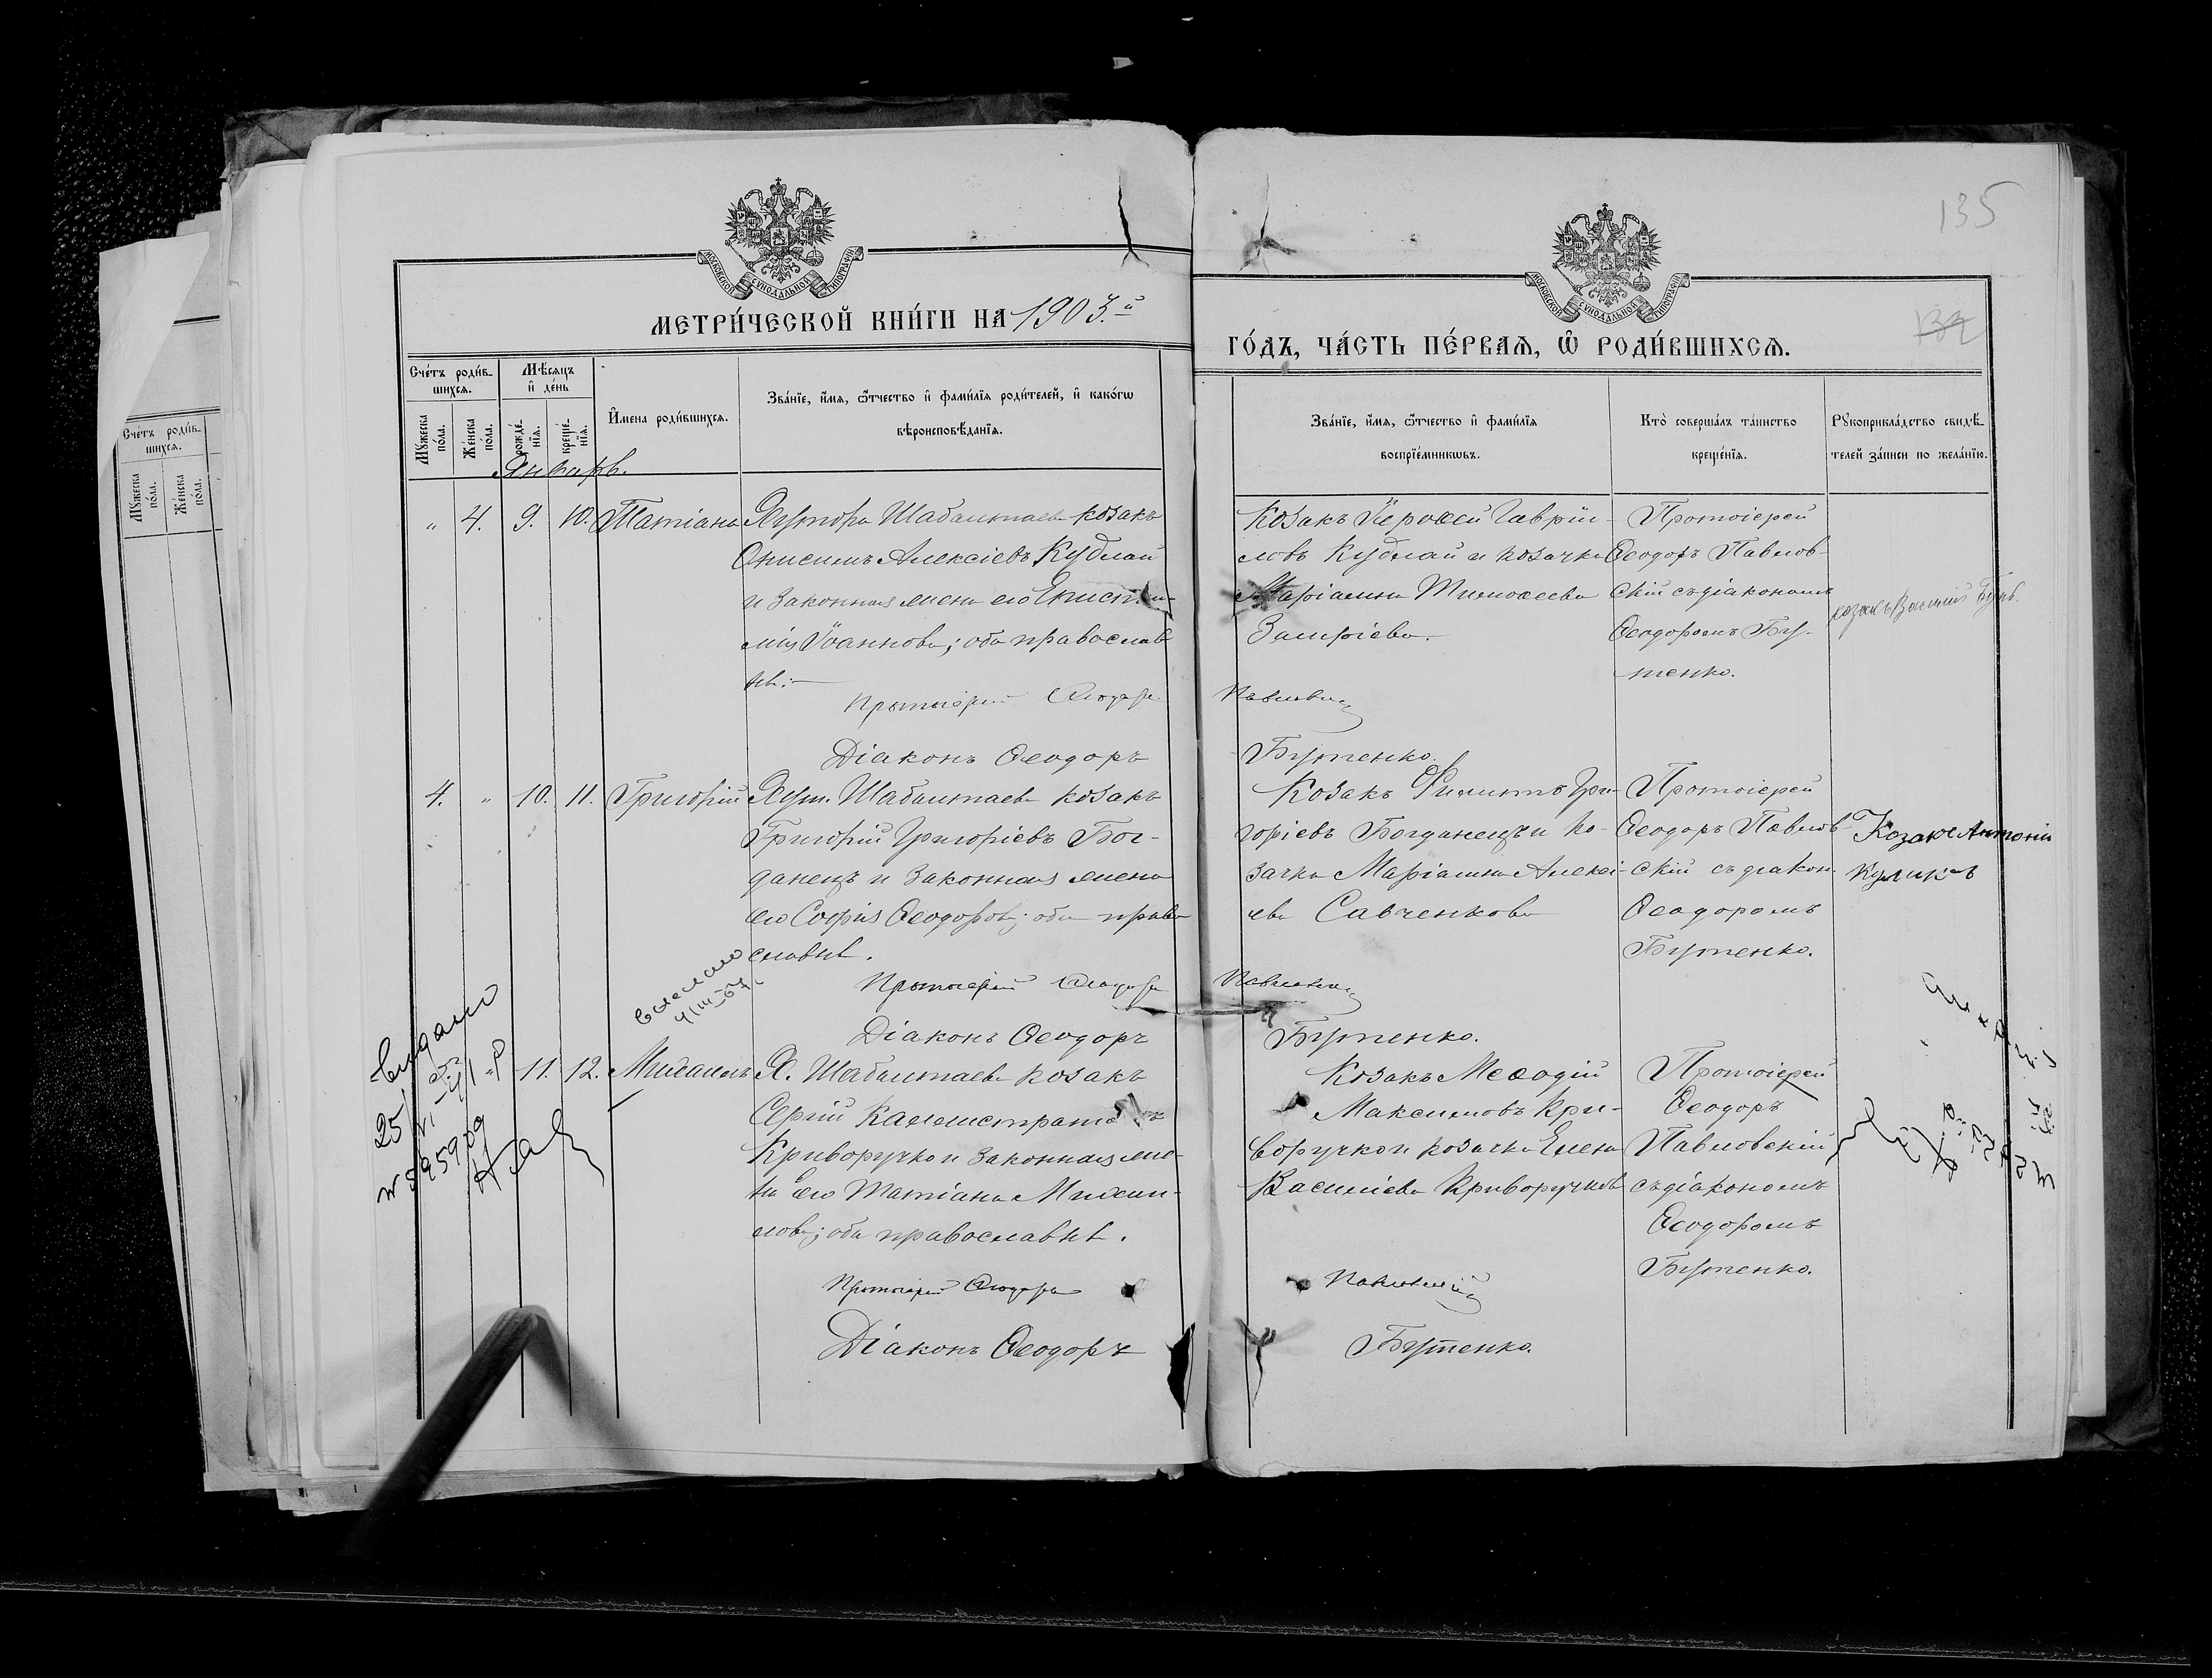 135
132
МОСКОВСКОЙ СѴНОДАЛЬНОЙ ТИПОГРАФІИ
МОСКОВСКОЙ СѴНОДАЛЬНОЙ ТИПОГРАФІИ
МЕТРИ́ЧЕСКОЙ КНИ́ГИ НА 1903.й
ГО́ДЪ, ЧА́СТЬ ПЕ́РВАѦ, Ѡ РОДИ́ВШИХСѦ.
Сче́тъ роди́в-
шихсѧ.
Мѣ́сѧцъ
и де́нь
Мꙋжеска
по́ла.
Же́нска
по́ла.
рожде́-
нїѧ.
креще́-
нїѧ.
И҆мена роди́вшихсѧ.
Зва́нїе, и҆́мѧ, ѻ҆́тчество и҆ фами́лїѧ роди́телей, и҆ како́гѡ
вѣроисповѣ́данїѧ.
Зва́нїе, и҆́мѧ, ѻ҆́тчество и҆ фами́лїѧ
воспрїе́мникѡвъ.
Кто̀ соверша́лъ та́инство
креще́нїѧ.
Рꙋкоприкла́дство свидѣ́-
телей за́писи по жела́нїю.
Сче́тъ роди́в-
шихсѧ.
Мꙋжеска
по́ла.
Же́нска
по́ла.
Январь.
" 4. 9. 10. Татіана
Хутора Шабалтаева козакъ
Онисимъ Алексіевъ Кублай
и законная жена его
Іоаннова; оба православ
ны.
Протоіерей Ѳеодоръ Павловскій
Діаконъ Ѳеодоръ Бутенко.
Козакъ Іероѳей Гаврiи-
ловъ Кублай и козачка
Маріамна Тимоѳеева
Протоіерей
Ѳеодоръ Павлов-
скій съ діакономъ
Ѳеодоромъ Бу-
тенко.
козакъ Василий
4. " 10. 11. Григорій
Хут. Шабалтаева козакъ
Григорій Григоріевъ Бог-
данецъ и законная жена
его Софія Ѳеодорова; оба право
славны.
Протоіерей Ѳеодоръ Павловскій
Діаконъ Ѳеодоръ Бутенко.
Козакъ Филиппъ Гри-
горіевъ Богданецъ и ко-
зачка Маріамна Алексі-
ева Савченкова
Протоіерей
Ѳеодоръ Павлов-
скій съ діакон
Ѳеодоромъ
Бутенко.
Козакъ Антоній
Куликъ
выслано
Выдано
25/VI-41 р
№ 595909
11. 12. Михаилъ
Х. Шабалтаева козакъ
Сергій Каллистратовъ
Криворучко и законная же-
на его Татіана Михаи-
лова; оба православны.
Протоіерей Ѳеодоръ Павловскій
Діаконъ Ѳеодоръ Бутенко.
Козакъ Меѳодій
Максимовъ Кри-
воручко и козачка Елена
Василіева Криворучкова
Протоіерей
Ѳеодоръ
Павловскій
съ діакономъ
Ѳеодоромъ
Бутенко.